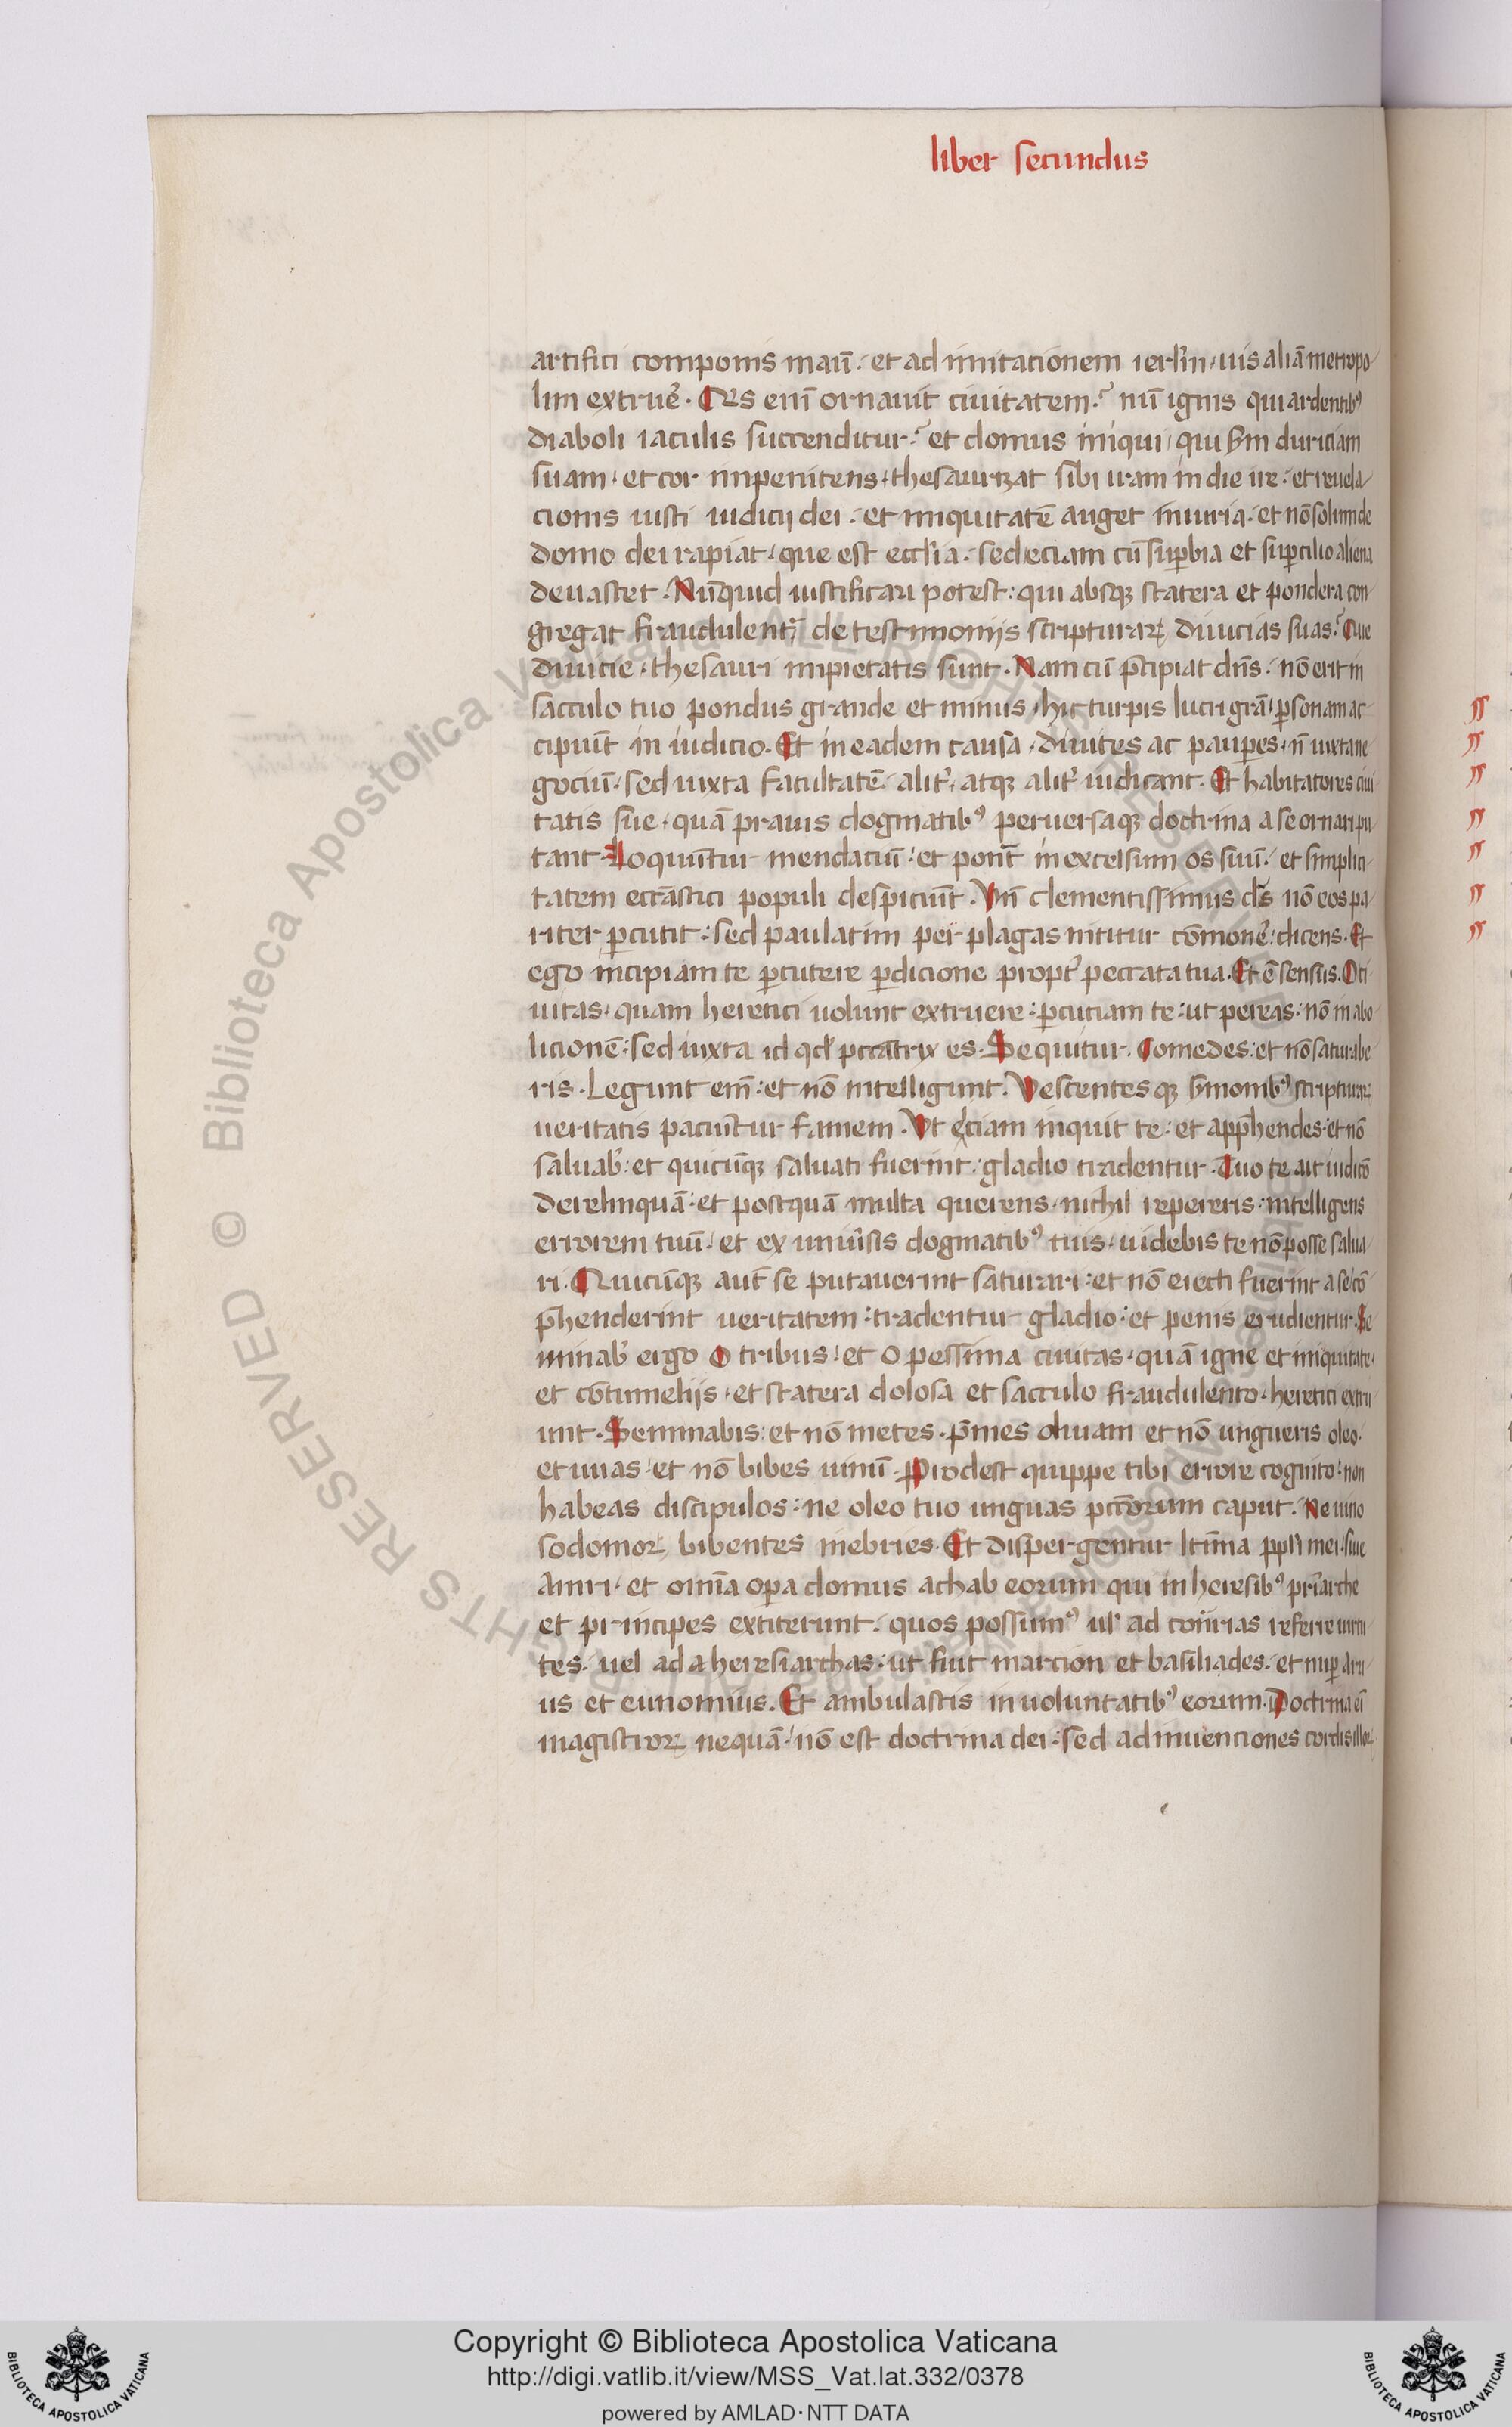 liber secundus
artifici componis manū. et ad imitacionem ierl̄m, uis aliā metropo
lim extrue̛. Qͥs enī ornauit ciuitatem? nū ignis qui ardentibꝰ
diaboli iaculis succenditur? et domus iniqui, qui s̄m duriciam
suam, et cor inpenitens, thesaurizat sibi iram in die ire. et reuela
cionis iusti iudicij dei. et iniquitatē auget iniuria. et nō solum de
domo dei rapiat, que est eccl̄ia. sed eciam cū suꝑbia et suꝑcilio aliena
deuastet. Nūquid iustificari potest: qui absqꝫ statera et pondera con
gregat fraudulent̛, de testimonijs scripturaꝝ diuicias suas? Que
diuicie, thesauri impietatis sunt. Nam cū p̄cipiat dn̄s. nō erit in
sacculo tuo pondus grande et minus, hii turpis lucri grā, ꝑsonam ac
cipiūt in iudicio. Et in eadem causa, diuites ac pauꝑes, n̄ iuxta ne
gociū, sed iuxta facultatē. alit̛, atqꝫ alit̛ iudicant. Et habitatores ciui
tatis sue, quā prauis dogmatibꝰ peruersaqꝫ doctrina a se ornari pu
tant. Loquūtur mendaciū. et ponūt in excelsum os suū. et simplici
tatem eccāstici populi despiciūt. Vn̄ clementissimus ds̄ nō eos pa
riter ꝑcutit: sed paulatim per plagas nititur cōmone̛: dicens. Et
ego incipiam te ꝑcutere ꝑdicione propt̛ peccata tua. Et ē sensus. O ci
uitas, quam heretici uolunt extruere: ꝑcutiam te: ut pereas: nō in abo
licionē: sed iuxta id qd̛ pccātrix es. Sequitur. Comedes: et nō saturabe
ris. Legunt em̄: et nō intelligunt. Vescentes qꝫ s̄monibꝰ scripturaꝝ
ueritatis paciūtur famem. Vt eciam inquit te: et app̄hendes: et nō
saluab̛: et quicūqꝫ saluati fuerint: gladio tradentur. Tuo te ait iudicō
derelinquā: et postquā multa querens, nichil repereris: intelligens
errorem tuū. et ex uniưsis dogmatibꝰ tuis, uidebis te nō posse salua
ri. Quicūqꝫ aut̄ se putauerint saturari: et nō eiecti fuerint a se cō
p̄henderint ueritatem: tradentur gladio: et penis erudientur. Se
minab̛ ergo O tribus: et O pessima ciuitas, quā igne et iniquitate,
et cōtumelijs, et statera dolosa et sacculo fraudulento, heretici extru
unt. Seminabis: et nō metes. p̄mes oliuam et nō ungueris oleo.
et uuas: et nō bibes uinū. Prodest quippe tibi errore cognito: non
habeas discipulos: ne oleo tuo unguas pccōrum caput. Ne uino
sodomoꝝ bibentes inebries. Et dispergentur lt̄ima ppl̄i mei, siue
Amri, et omīa oꝑa domus achab eorum qui in heresibꝰ pri̅arche
et principes extiterunt. quos possumꝰ ul̛ ad cont̄rias referre uirtu
tes. uel ad heresiarchas: ut fiūt marcion et basiliades. et nuꝑ arri
us et eunomius. Et ambulastis in uoluntatibꝰ eorum. Doctrina eī
magistroꝝ nequā. nō est doctrina dei: sed adinuenciones cordis illoꝝ
Biblioteca Apostolica Vaticana ALL RIGHTS RESERVED ©
Copyright © Biblioteca Apostolica Vaticana
http://digi.vatlib.it/view/MSS_Vat.lat.332/0378
powered by AMLAD·NTT DATA
BIBLIOTECA APOSTOLICA VATICANA
BIBLIOTECA APOSTOLICA VATICANA